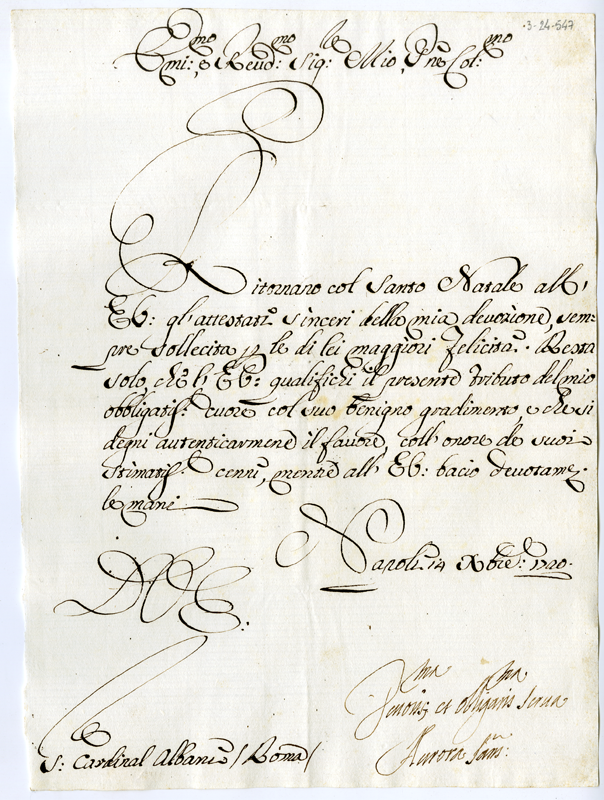 ·3-24-547
Emi:mo e Reud:mo Sig:le Mio, Pne Col:mo
Ritornano col Santo Natale all'
Eb: gl'attestati sinceri della mia devozione, sem-
pre sollecita p le di lei maggiori felicità. Resta
solo, che l'Eb: qualifichi il presente tributo del mio
obbligatis:o cuore col suo benigno gradimento, e che si
degni autenticarmene il favore coll'onore de suoi
stimatis:i cenni, mentre all'Eb: bacio devotame:
le mani
Napoli 14 Xbre: 1720.
D V E:
Deuotis:ma et obligatis:ma serua
Aurora San:
S: Cardinal Albani (Roma(